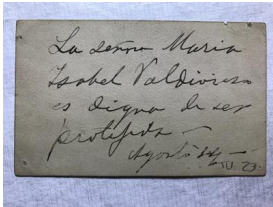 La señora Maria
Isabel Valdivieso
es digna de ser
protejida —
Agosto 14 —